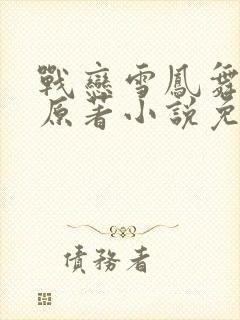 戰戀雪鳳舞
原著小說免
債務者